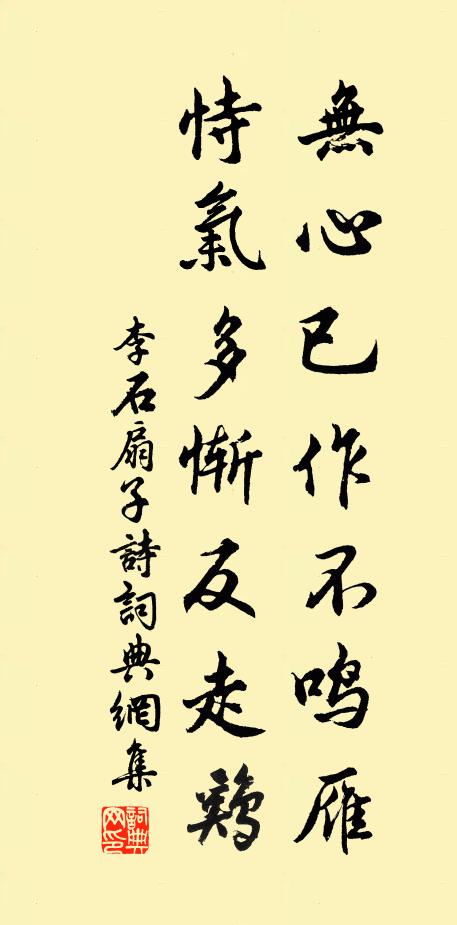 無心已作不鸣雁
恃氣多慚反走鷄
李石扇子詩詞典網集
詞典网印